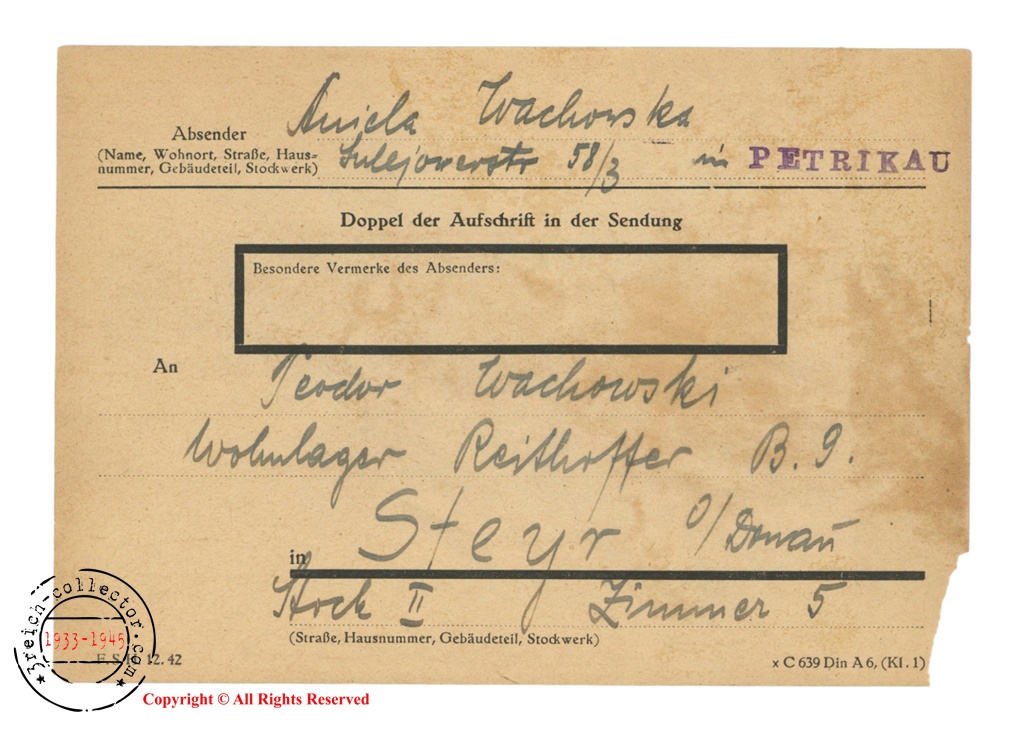 Absender Aniela Wachowska
(Name, Wohnort, Straße, Haus= Sulejowerstr 58/3 in PETRIKAU
nummer, Gebäudeteil, Stockwerk)
Doppel der Aufschrift in der Sendung
Besondere Vermerke des Absenders:
An Teodor Wachowski
Wohnlager Reithoffer B. 9.
in Steyr o/Donau
Stock II Zimmer 5
(Straße, Hausnummer, Gebäudeteil, Stockwerk)
12. 42 x C 639 Din A 6, (Kl. 1)
3reich-collector.com
1933-1945
Copyright © All Rights Reserved